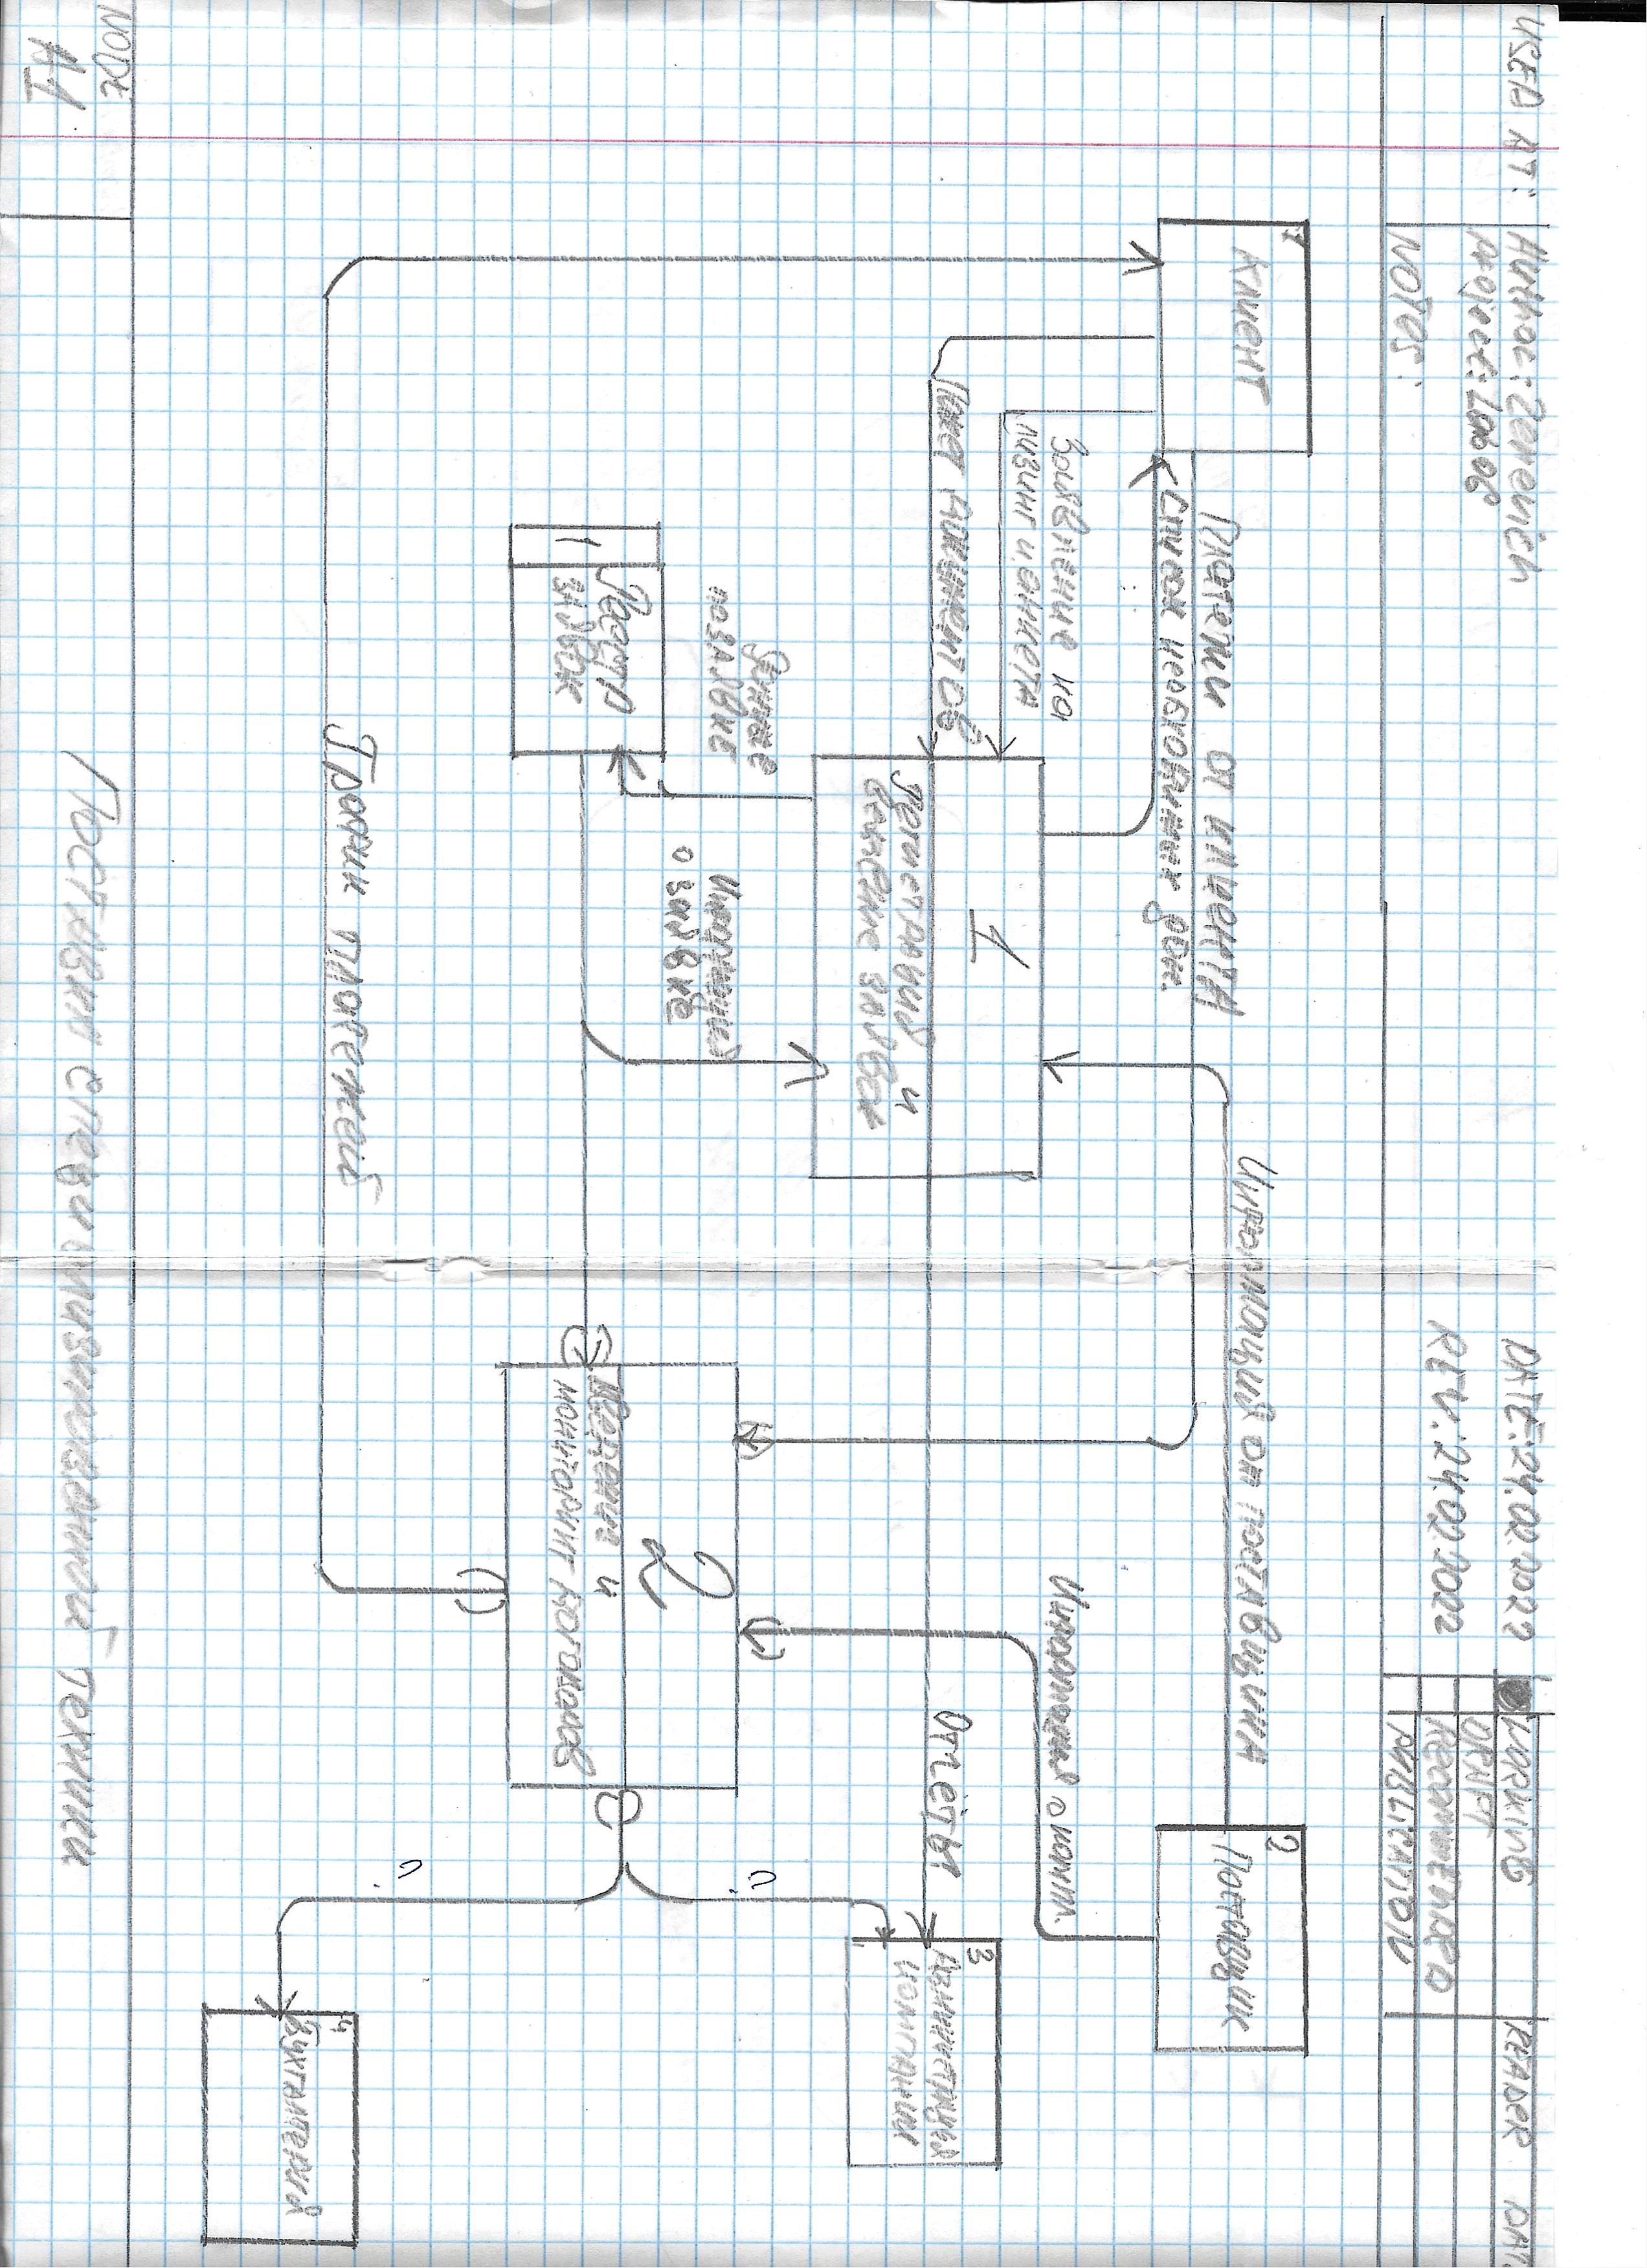 USED AT:
Author: Zenevich
Project: Lab06
NOTES:
DATE: 24.02.2022
REV: 24.02.2022
WORKING
DRAFT
RECOMMENDED
PUBLICATION
READER DAT
1
Клиент
Платежи от клиента
Список необходимых док.
Информация от поставщика
2
Поставщик
Заявление на
лизинг и анкета
Пакет документов
1
Регистрация и
ведение заявок
Информация о компл.
Отчёты
3
Администрация
компании
Данные
по заявке
Информация
о заявке
1
Реестр
заявок
2
Ведение и
мониторинг договоров
?
?
График платежей
4
Бухгалтерия
NODE
A1
Поставка специализированной техники